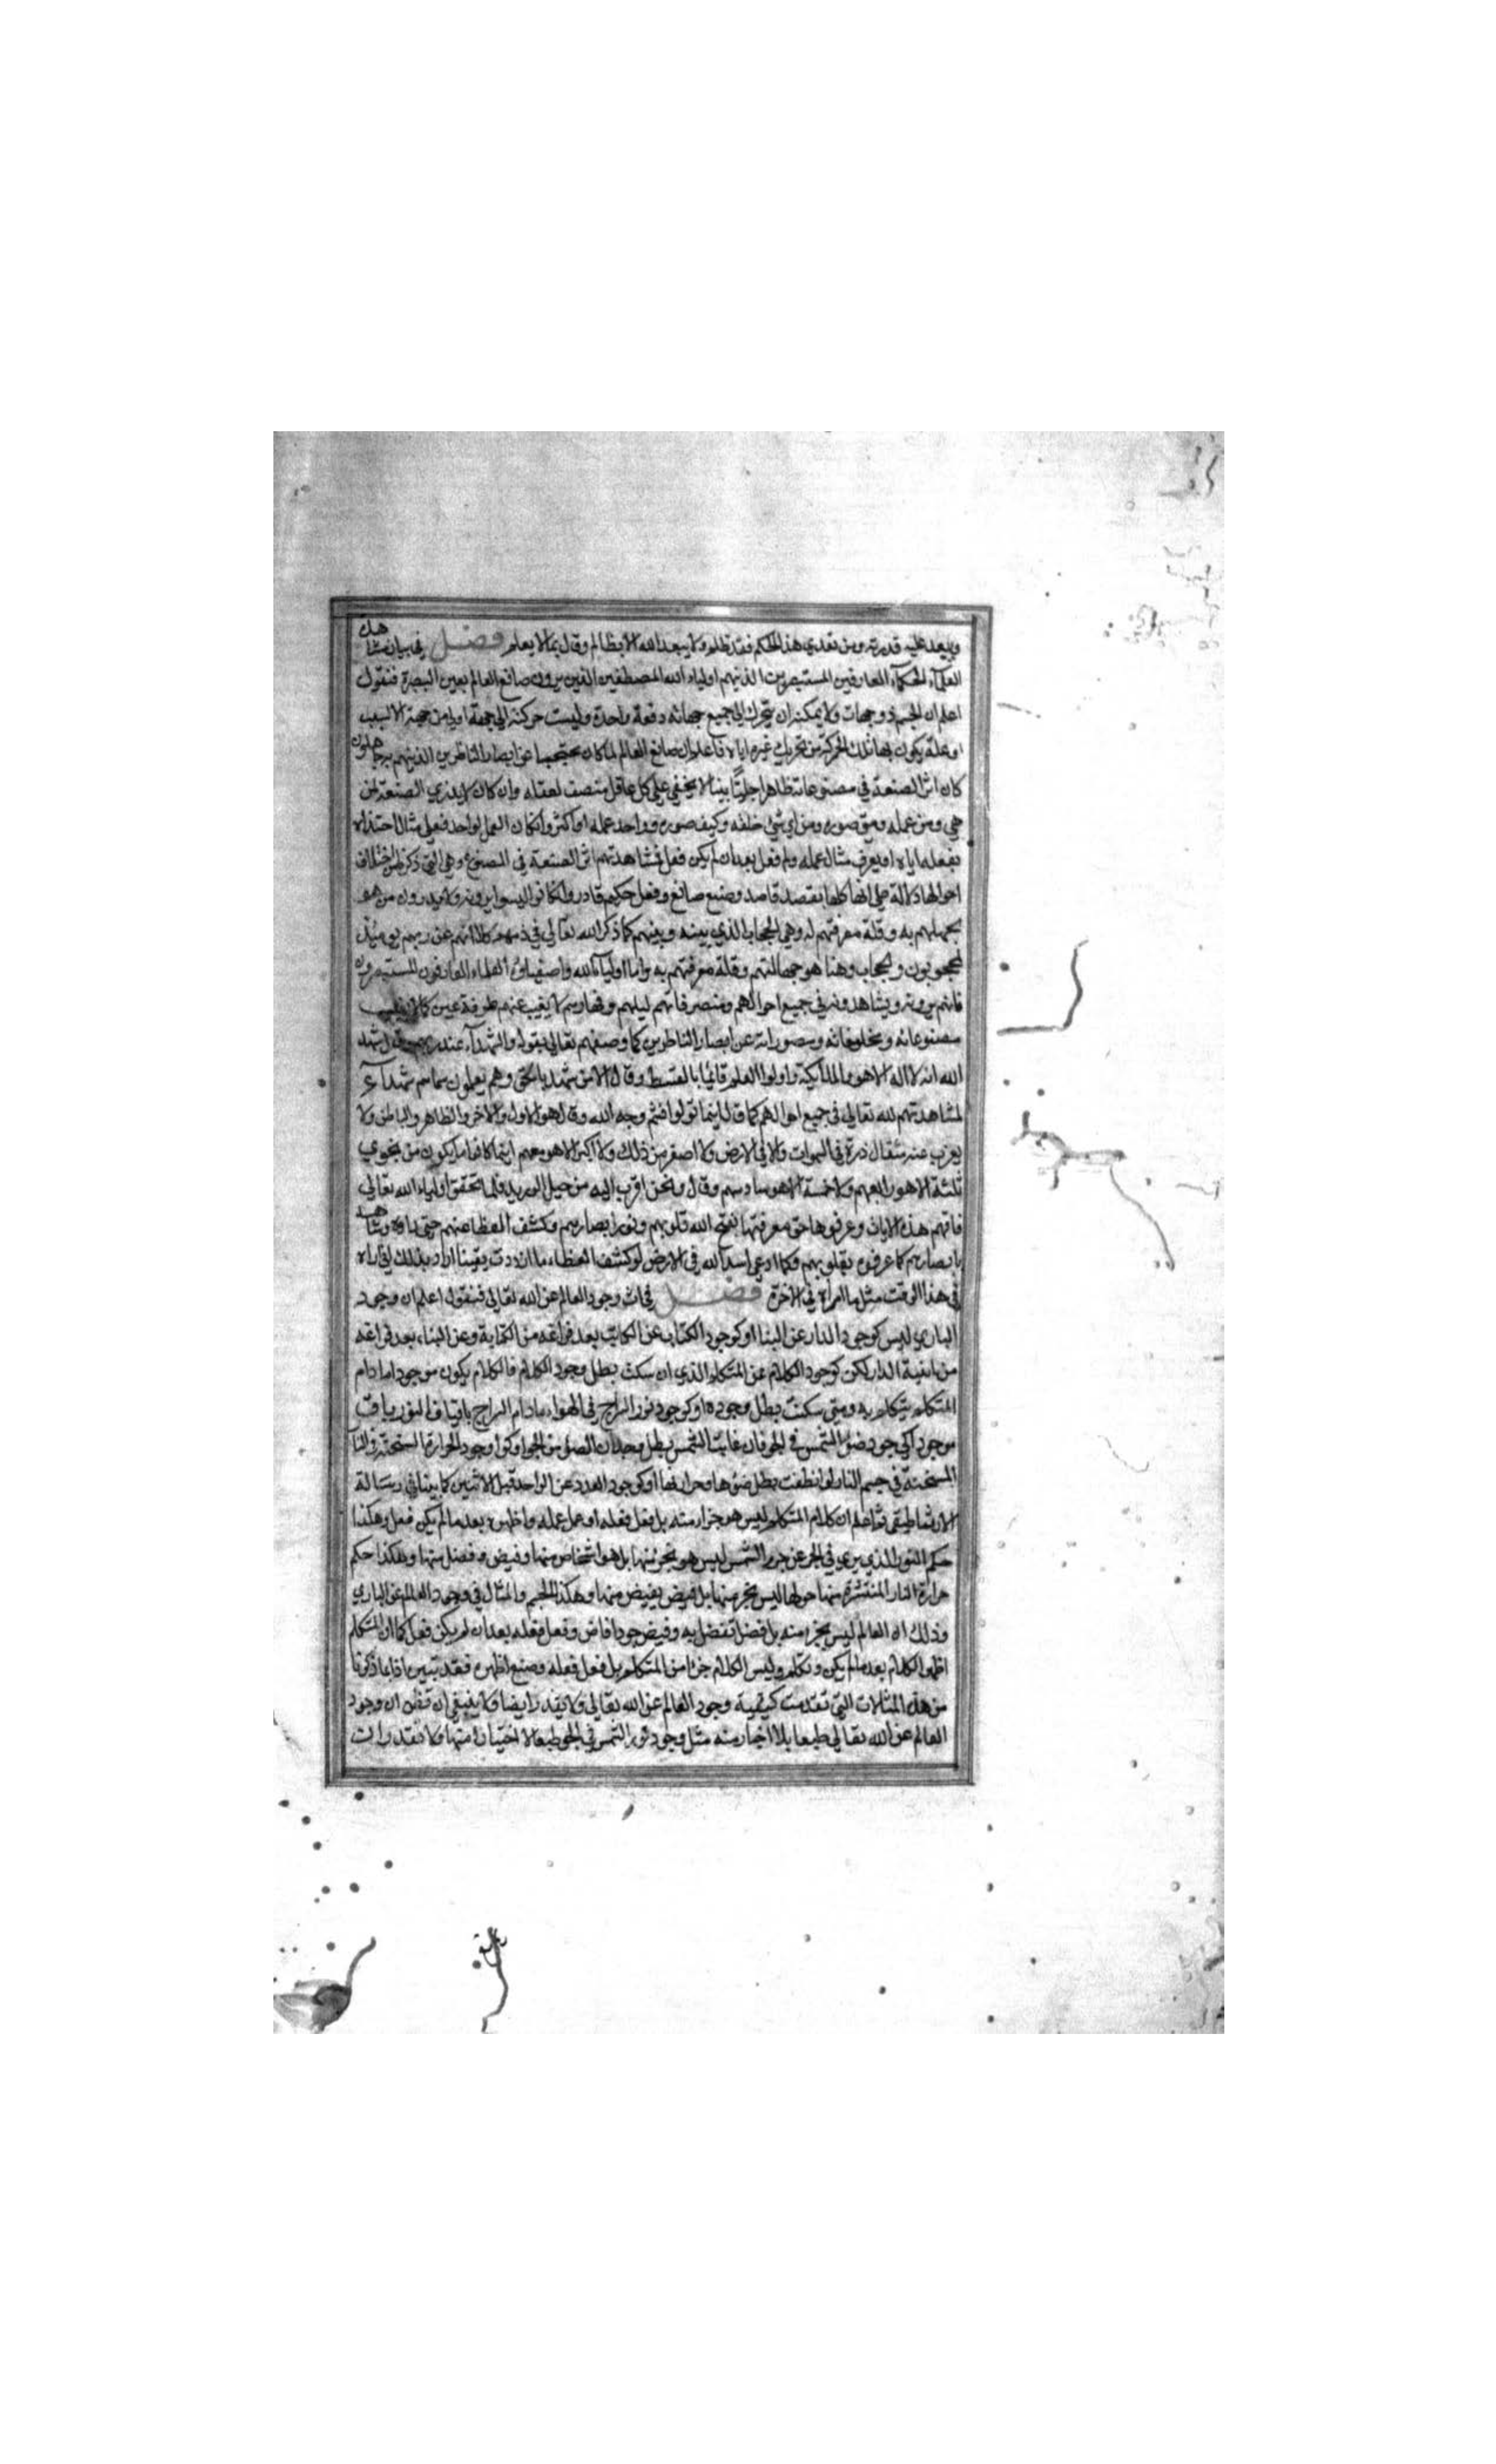 ويبعد عليه قدرته ومن تعدي هذا الحكم فقد ظلم ولا يبعد الله الا بظالم وقال بما لا يعلم فصل في بيان مشاهدة
العلماء الحكماء العارفين المستبصرين الذينهم اولياء الله المصطفين الذين يرون صانع العالم بعين البصيرة فنقول
اعلم ان الجسم ذو جهات ولا يمكنه ان يتحرك الي جميع جهاته دفعة واحدة وليست حركته الي جهة اولي من جهة الا لسبب
او علة يكون بها تلك الحركة من تحريك غيره اياه فاعلم ان صانع العالم لما كان محتجبا عن ابصار الناظرين الذينهم به جاهلون
كان اثر الصنعة في مصنوعاته ظاهرا جليًّا بينا لا يخفي علي كل عاقل منصف لعقله وان كان لا يدري الصنعة لمن
هي ومن عمله ومتي صوره ومن اي شئ خلقه وكيف صوره وواحد عمله او اكثر وان كان العمل لواحد فعلي مثال احتذاه
بفعله اياه او بعرف مثال عمله ولم فعل بعد ان لم يكن فعل فشاهدتهم اثر الصنعة في المصنوع وهي التي ذكرنا من اختلاف
احوالها دلالة علي انها كلها بقصد قاصد وصنع صانع وفعل حكيم قادر ولكانوا ليسوا يرونه ولا يدرون من هو
بجهلهم به وقلة معرفتهم له وهي الحجاب الذي بينه وبينهم كما ذكر الله تعالي في ذمهم كلا انهم عن ربهم يومئذ
لمحجوبون والحجاب وهنا هو جهالتهم وقلة معرفتهم به واما اولياء الله واصفياؤه العلماء العارفون المستبصرون
فانهم يرونه ويشاهدونه في جميع احوالهم ومتصرفاتهم ليلهم ونهارهم لا يغيب عنهم طرفة عين كما لا يغيب
مصنوعاته ومخلوقاته ومصوراته عن ابصار الناظرين كما وصفهم تعالي بقوله والشهداء عند ربهم وقال شهد
الله انه لا اله الا هو والملائكة واولوا العلم قائما بالقسط وقال الا من شهد بالحق وهم يعلمون سماهم شهداء
لمشاهدتهم لله تعالي في جميع احوالهم كما قال اينما تولوا فثم وجه الله وقال هو الاول والاخر والظاهر والباطن ولا
يعزب عنه مثقال ذرة في السموات ولا في الارض ولا اصغر من ذلك ولا اكبر الا هو معهم اينما كانوا ما يكون من نجوي
ثلثة الا هو رابعهم ولا خمسة الا هو سادسهم وقال ونحن اقرب اليه من حبل الوريد فلما تحقق اولياء الله تعالي
فافهم هذه الايات وعرفوها حق معرفتها بفتح الله قلوبهم ونور ابصارهم وكشف الغطاء عنهم حتي راوه وشاهدوه
بابصارهم كما عرفوه بقلوبهم وكما ادعي اسد الله في الارض لو كشف الغطاء ما ازددت يقينا اراد بذلك اني اراه
في هذا الوقت مثل ما اراه في الاخرة فصل في اثبات وجود العالم عن الله تعالي فنقول اعلم ان وجود
الباري ليس كوجود الدار عن البنا او كوجود الكتاب عن الكاتب بعد فراغه من الكتابة وعن البناء بعد فراغه
من ابنية الدار لكن كوجود الكلام عن المتكلم الذي ان سكت بطل وجود الكلام فالكلام يكون موجودا ما دام
المتكلم يتكلم به ومتي سكت بطل وجوده او كوجود نور السراج في الهواء ما دام السراج باقيا فالنور باق
موجود اكوجود ضوء الشمس في الجو فان غابت الشمس بطل وجدان الضوء من الجو او كوجود الحرارة المسخنة في النار
المسخنة في جسم النار لو انطفت بطل ضوءها وحرارتها او كوجود العدد عن الواحد قبل الاثنين كما بينا في رسالة
الارثماطيقي ثم اعلم ان كلام المتكلم ليس هو جزء منه بل فعل فعله او عمل عمله واظهره بعد ما لم يكن فعل وهكذا
حكم النور الذي يري في الجو عن جرم الشمس ليس هو بجزء منها بل هو انبجاس منها وفيض وفضل منها وهكذا حكم
حرارة النار المنتشرة منها حولها ليس بجزء منها بل فيض يفيض منها وهكذا الحكم والمثال في وجود العالم عن الباري
وذلك ان العالم ليس بجزء منه بل فضل تفضل به وفيض جود افاض وفعل فعله بعد ان لم يكن فعل كما ان المتكلم
اظهر الكلام بعد ما لم يكن وتكلم وليس الكلام جزءا من المتكلم بل فعل فعله وصنع اظهره فقد تبين اذا بما ذكرنا
من هذه المثالات التي تقدمت كيفية وجود العالم عن الله تعالي ولا يقدر ايضا ولا ينبغي ان تظن ان وجود
العالم عن الله تعالي طبعا بلا اختيار منه مثل وجود نور الشمس في الجو طبعا لا اختيارا منها ولا تقدر ان